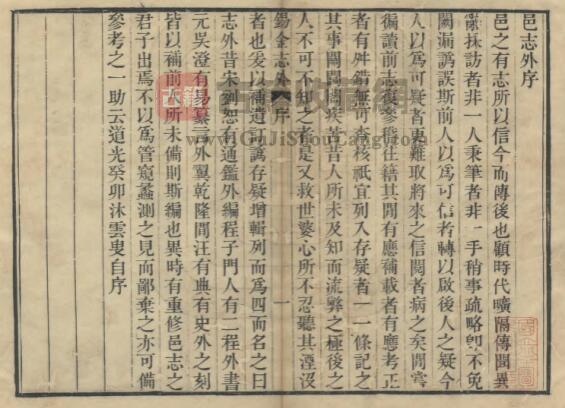 邑志外序
邑之有志所以信今而傳後也顧時代曠隔傳聞異
辭採訪者非一人秉筆者非一手稍事疏略卽不免
闕漏譌誤斯前人以爲可信者轉以啟後人之疑今
人以爲可疑者更難取將來之信閱者病之矣閒嘗
徧讀前志復參稽往籍其閒有應補載者有應考正
者有舛錯無可查核祇宜列入存疑者一一條記之
其事關閭閻疾苦昔人所未及知而流弊之極後之
人不可不知之者是又救世婆心所不忍聽其湮沒
者也爰以補遺訂譌存疑增輯列而爲四而名之曰
錫金志外
序
一
志外昔宋劉恕有通鑑外編程子門人有二程外書
元吳澄有易纂言外翼乾隆閒汪有典有史外之刻
皆以補前人所未備則斯編也異時有重修邑志之
君子出焉不以爲管窺蠡測之見而鄙棄之亦可備
參考之一助云道光癸卯沐雲叟自序
www.GuJiShouLang.com